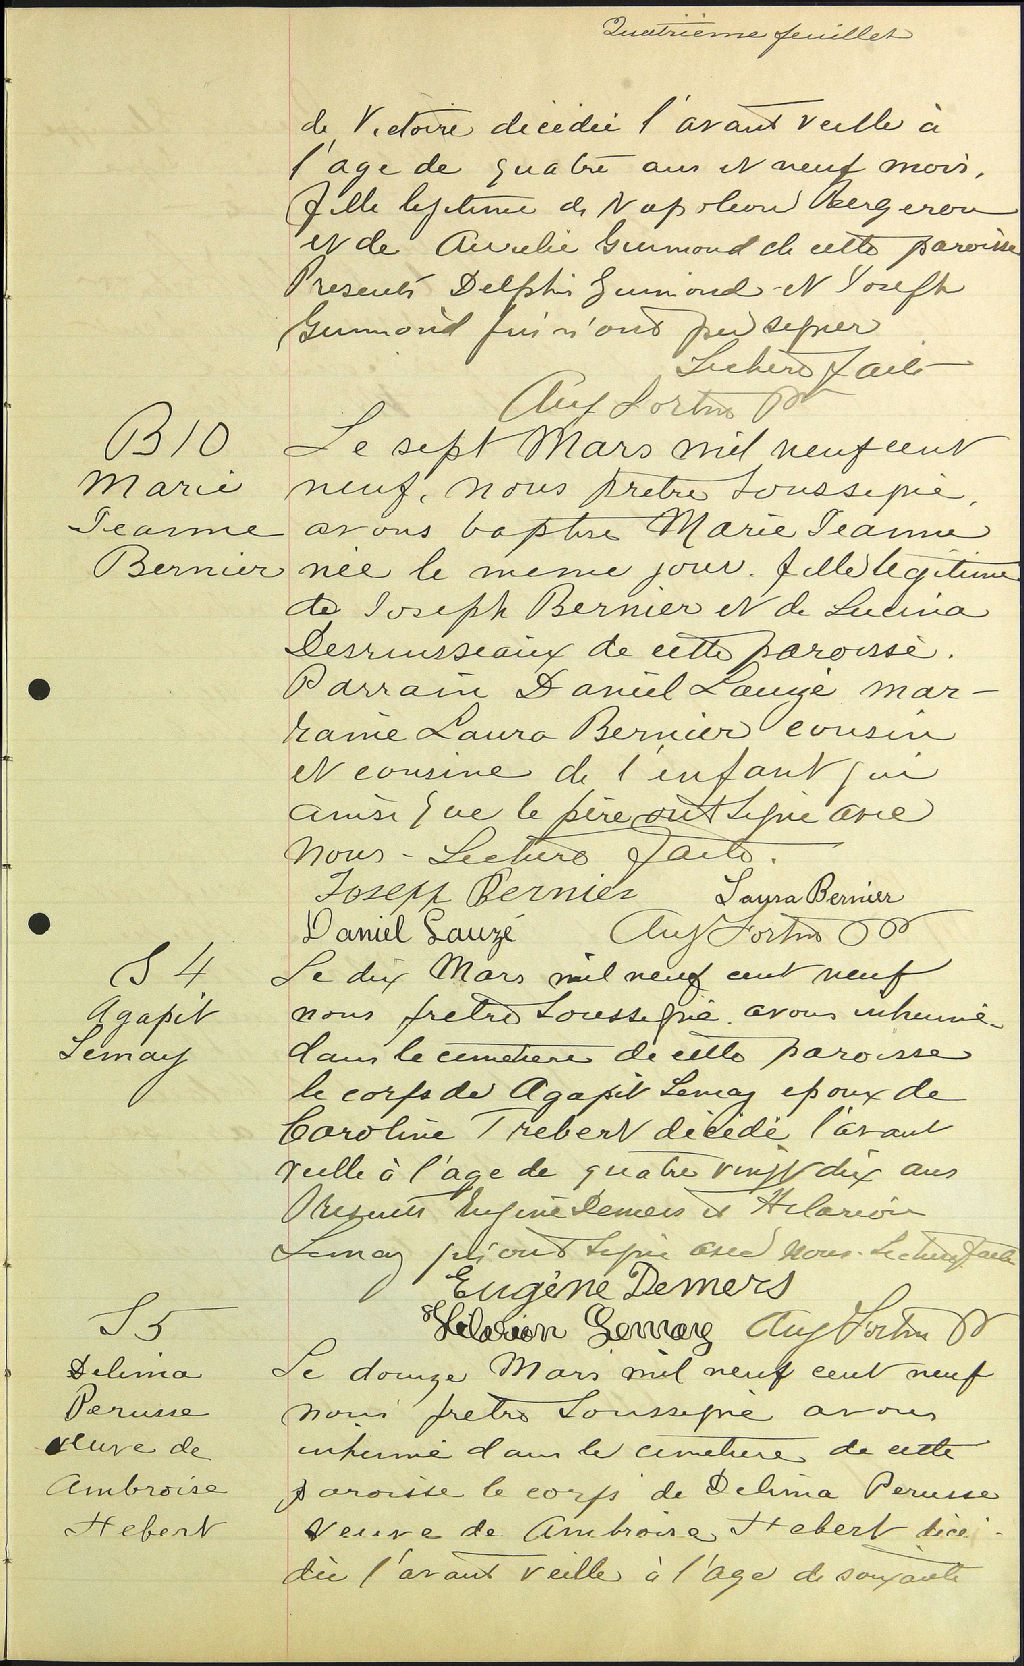 Quatrième feuillet
de Victoire décédée l'avant veille à
l'age de quatre ans et neuf mois,
fille legitime de Napoleon Bergeron
et de Aurelie Guimond de cette paroisse
Presents Delphis Guimond et Joseph
Guimond qui n'ont pu signer
Lecture faite
Aug Fortin Ptr
B10
Marie
Jeanne
Bernier
Le sept Mars mil neuf cent
neuf, nous prêtre soussigné,
avons baptisé Marie Jeanne
née le meme jour. fille legitime
de Joseph Bernier et de Lucina
Desruisseaux de cette paroisse.
Parrain Daniel Lauzé mar-
raine Laura Bernier cousin
et cousine de l'enfant qui
ainsi que le père ont signé avec
nous - Lecture faite.
Joseph Bernier Laura Bernier
Daniel Lauzé Aug Fortin Ptr
S 4
Agapit
Lemay
Le dix Mars mil neuf cent neuf
nous prêtre soussigné avons inhumé
dans le cimetiere de cette paroisse
le corps de Agapit Lemay epoux de
Caroline Trebert décédé l'avant
veille à l'age de quatre vingt dix ans
Presents Eugène Demers et Hilarion
Lemay qui ont signé avec nous. Lecture faite
Eugène Demers
Hilarion Lemay Aug Fortin Ptr
S5
Delima
Perusse
veuve de
Ambroise
Hebert
Le douze Mars mil neuf cent neuf
nous prêtre soussigné avons
inhumé dans le cimetiere de cette
paroisse le corps de Delima Perusse
veuve de Ambroise Hebert décé-
dée l'avant veille à l'age de soixante